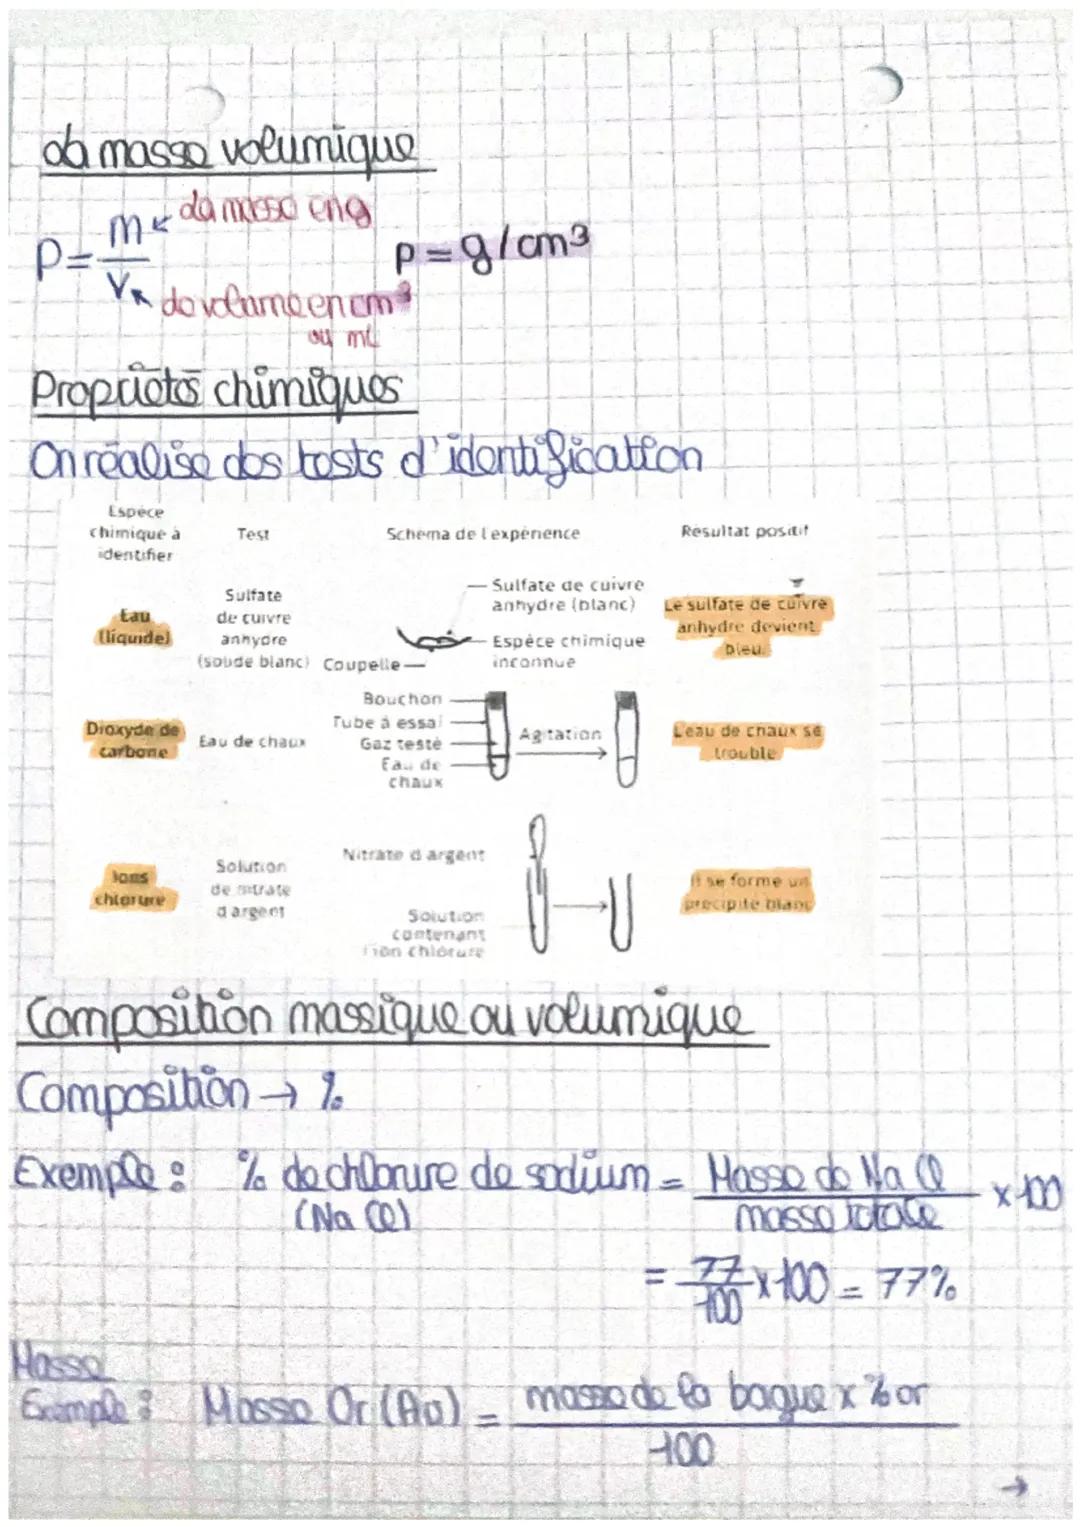 La masse volumique
P = m/V
La masse en g
Le volume en cm³
ou mL
P = g/cm³
Propriétés chimiques
On réalise des tests d'identification
Espèce chimique à identifier
Test
Schéma de l'expérience
Résultat positif
Eau (liquide)
Sulfate de cuivre anhydre (solide blanc)
Coupelle
Sulfate de cuivre anhydre (blanc)
Espèce chimique inconnue
Le sulfate de cuivre anhydre devient bleu.
Dioxyde de carbone
Eau de chaux
Bouchon
Tube à essai
Gaz testé
Eau de chaux
Agitation
L'eau de chaux se trouble
Ions chlorure
Solution de nitrate d'argent
Nitrate d'argent
Solution contenant l'ion chlorure
Il se forme un précipité blanc
Composition massique ou volumique
Composition → %
Exemple : % de chlorure de sodium = Masse de NaCl / masse totale × 100
(NaCl)
= 77/100 × 100 = 77%
Masse
Exemple : Masse Or (Au) = masse de la bague × % or / 100
→